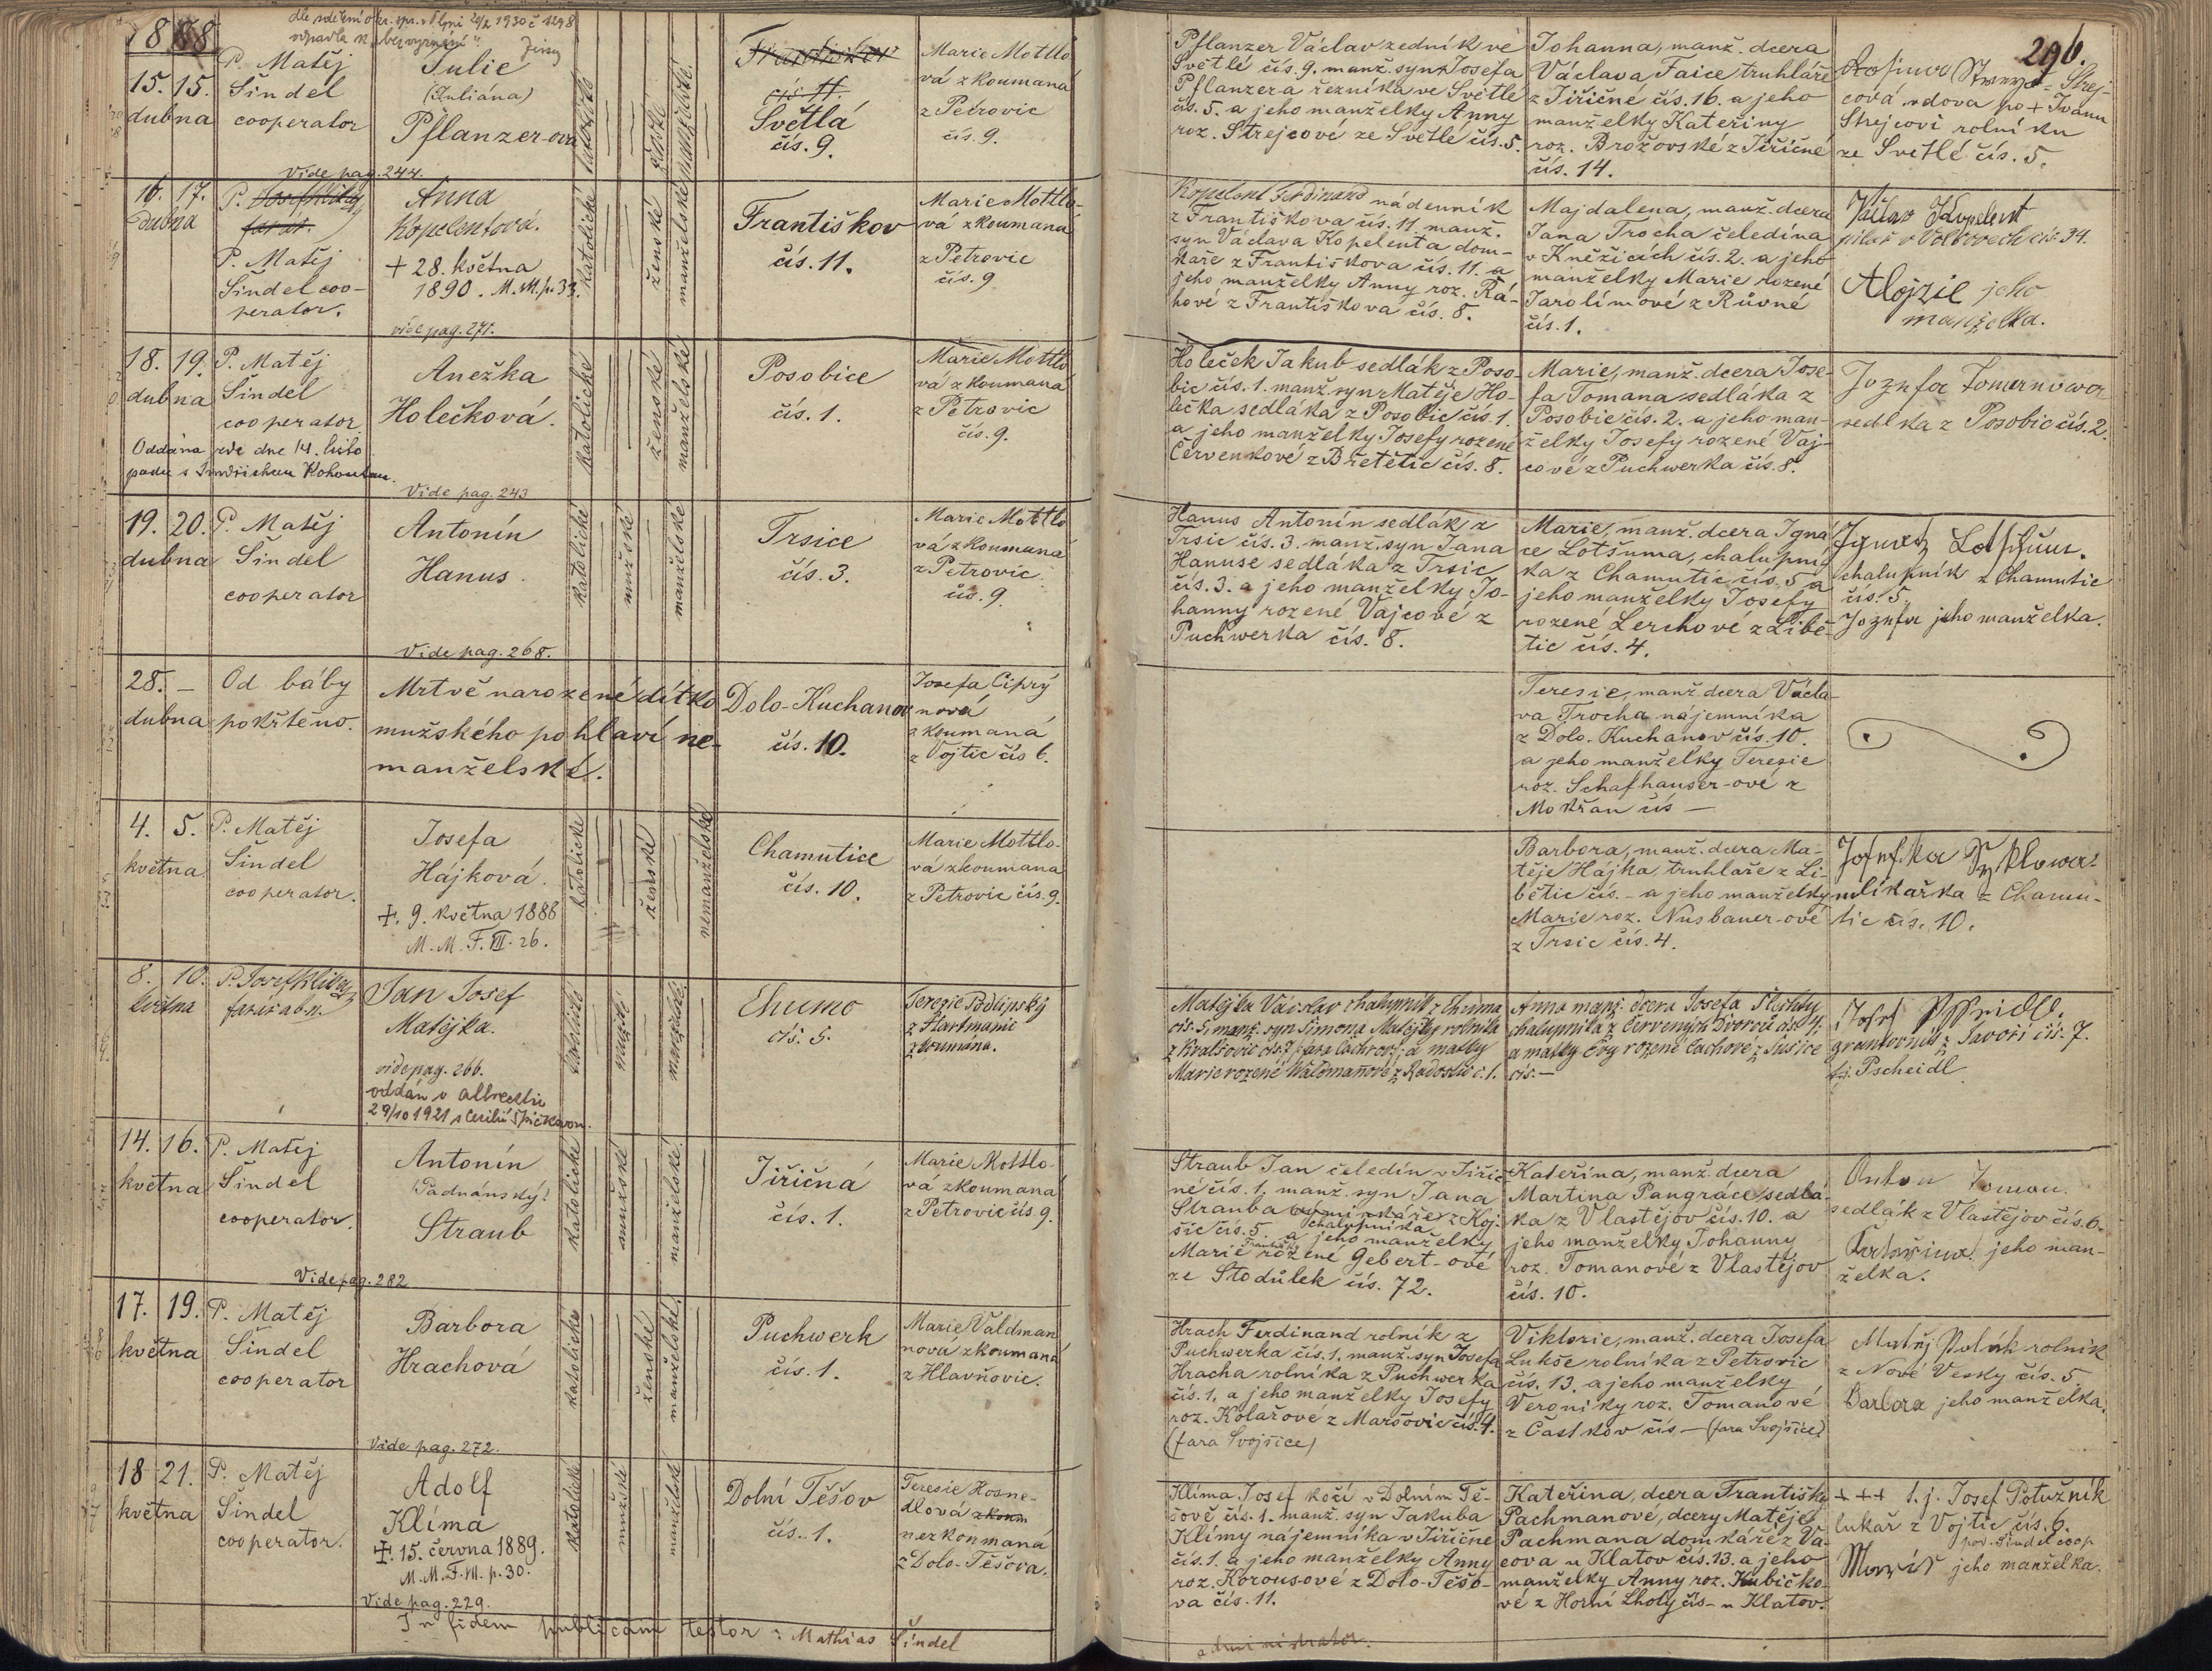 1888
dle sdělení okr. spr. v
1930 č 1298
296.
15. 15.
dubna
P. Matěj
Šindel
cooperator
Julie
(Juliána)
Pflanzer-ová
Vide pag. 244.
katolické
ženské
manželské
Františkov
čís 11.
Světlá
čís. 9.
Marie Mottlo
vá zkoumaná
z Petrovic
čís. 9.
Pflanzer Václav zedník ve
Světlé čís. 9. manž. syn Josefa
Pflanzera řezníka ve Světlé
čís. 5. a jeho manželky Anny
roz. Strejcové ze Světlé čís. 5.
Johanna, manž. dcera
Václava Faice truhláře
z Jiřičné čís. 16. a jeho
manželky Kateřiny
roz. Brožovské z Jiřičné
čís. 14.
Strej-
cová vdova po + Ivanu
Strejcovi rolníku
ze Světlé čís. 5.
16. 17.
dubna
P.
P. Matěj
Šindel coo-
perator.
Anna
Kopelentová.
+ 28. května
1890. M. M. p. 33.
vide pag. 271.
katolické
ženské
manželské
Františkov
čís. 11.
Marie Mottlo-
vá zkoumaná
z Petrovic
čís. 9
Kopelent Ferdinand nádenník
z Františkova čís. 11. manž.
syn Václava Kopelenta dom-
káře z Františkova čís. 11. a
jeho manželky Anny roz. Rá-
hové z Františkova čís. 8.
Majdalena, manž. dcera
Jana Trocha čeledína
v Kněžicích čís. 2. a jeho
manželky Marie rozené
Jarolímové z Růvné
čís. 1.
Václav Kopelent
pilař v Volšovech čís. 34.
Alojzie jeho
manželka.
18. 19.
dubna
P. Matěj
Šindel
cooperator.
Oddána zde dne 14. listo
padu s Jindřichem Kohoutem.
Anežka
Holečková.
Vide pag. 243
katolické
ženské
manželské
Posobice
čís. 1.
Marie Mottlo
vá zkoumaná
z Petrovic
čís. 9.
Holeček Jakub sedlák z Poso-
bic čís. 1. manž. syn Matěje Ho-
lečka sedláka z Posobic čís. 1.
a jeho manželky Josefy rozené
Červenkové z Břetětic čís. 8.
Marie, manž. dcera Jose-
fa Tomana sedláka z
Posobic čís. 2. a jeho man-
želky Josefy rozené Vaj-
cové z Puchwerka čís. 8.
Jozefa Tomanowa
sedlka z Posobic čís. 2.
19. 20.
dubna
P. Matěj
Šindel
cooperator
Antonín
Hanus.
Vide pag. 268.
katolické
mužské
manželské
Trsice
čís. 3.
Marie Mottlo
vá zkoumaná
z Petrovic
čís. 9.
Hanus Antonín sedlák z
Trsic čís. 3. manž. syn Jana
Hanuse sedláka z Trsic
čís. 3. a jeho manželky Jo-
hanny rozené Vajcové z
Puchwerka čís. 8.
Marie, manž. dcera Igná
ce Lotšuma, chalupní
ka z Chamutic čís. 5 a
jeho manželky Josefy
rozené Lerchové z Libě-
tic čís. 4.
Ignatz
chalupník z Chamutic
čís. 5.
Jozefa jeho manželka.
28. —
dubna
Od báby
pokřtěno.
Mrtvě narozené dítko
mužského pohlaví ne-
manželské.
Dolo-Kuchanov
čís. 10.
Josefa Ciprý
nová
zkoumaná
z Vojtic čís 6.
Teresie, manž. dcera Václa-
va Trocha nájemníka
z Dolo-Kuchanov čís. 10.
a jeho manželky Teresie
roz. Schafhauser-ové z
Mokřan čís —
4. 5.
května
P. Matěj
Šindel
cooperator.
Josefa
Hájková.
+. 9. května 1888
M. M. F. VII. 26.
katolické
ženské
nemanželské
Chamutice
čís. 10.
Marie Mottlo-
vá zkoumaná
z Petrovic čís. 9.
Barbora, manž. dcera Ma-
těje Hájka, truhláře z Li-
bětic čís. - a jeho manželky
Marie roz. Nusbauer-ové
z Trsic čís. 4.
mlíkařka z Chamu-
tic čís. 10.
8. 10.
května
P. Josef
farář
Jan Josef
Matějka.
vide pag. 266.
oddán v Albrechtic
29/10 1921 s
katolické
mužské
manželské
Chumo
čís. 5.
Terezie Podlipský
z Hartmanic
zkoumána.
Matějka Václav chalupník z Chuma
čís. 5, manž. syn Šimona Matějky rolníka
a matky
Marie rozené Waldmanové z Radostic č. 1.
Anna manž. dcera Josefa
chalupníka z Červených Dvorců čís. 4.
a matky Evy rozené Cachové z Sušice
čís. —
Josef
gruntovník z Javoří čís. 7.
Pscheidl
14. 16.
května
P. Matěj
Šindel
cooperator.
Antonín
Straub
Vide pag. 282
katolické
mužské
manželské
Jiřičná
čís. 1.
Marie Mottlo-
vá zkoumaná
z Petrovic čís 9.
Straub Jan čeledín v Jiřič-
né čís. 1. manž. syn Jana
Strauba z Koj-
chalupníka
šic čís. 5. a jeho manželky
Marie rozené Gebert-ové
ze Stodůlek čís. 72.
Kateřina, manž. dcera
Martina Pangráce, sedlá-
ka z Vlastějov čís. 10. a
jeho manželky Johanny
roz. Tomanové z Vlastějov
čís. 10.
Anton Toman
sedlák z Vlastějov čís. 6.
jeho man-
želka.
17. 19.
května
P. Matěj
Šindel
cooperator
Barbora
Hrachová
Vide pag. 272.
katolické
ženské
manželské
Puchwerk
čís. 1.
Marie Valdman
nova zkoumaná
z Hlavňovic.
Hrach Ferdinand rolník z
Puchwerka čís. 1. manž. syn Josefa
Hracha rolníka z Puchwerka
čís. 1. a jeho manželky Josefy
roz. Kolařové z Maršovic čís. 4.
(fara Svojšice)
Viktorie, manž. dcera Josefa
Lukše rolníka z Petrovic
čís. 13. a jeho manželky
Veroniky roz. Tomanové
z Částkov čís — (fara Svojšice)
Matěj Polák rolník
z Nové Vesky čís. 5.
Barbora jeho manželka.
18 21.
května
P. Matěj
Šindel
cooperator.
Adolf
Klíma
+. 15. června 1889.
M. M. F. VII. p. 30.
Vide pag. 229.
katolické
mužské
manželské
Dolní Těšov
čís. 1.
Teresie Kosne-
dlová zkoum
nezkoumaná
z Dolo-Těšova.
Klíma Josef kočí v Dolním Tě-
šově čís. 1. manž. syn Jakuba
Klímy nájemníka v Jiřičné
čís. 1. a jeho manželky Anny
roz. Korousové z Dolo-Těšo-
va čís. 11.
Kateřina, dcera Františky
Pachmanové, dcery Matěje
Pachmana domkáře z Va-
cova u Klatov čís. 13. a jeho
manželky Anny roz. Kubičko-
vé z Horní Lhoty čís - u Klatov.
+++ t. j. Josef Potužník
lukař z Vojtic čís. 6.
pod. Šindel coop
Marie jeho manželka.
In fidem publicam testor: Mathias Šindel
administrator.